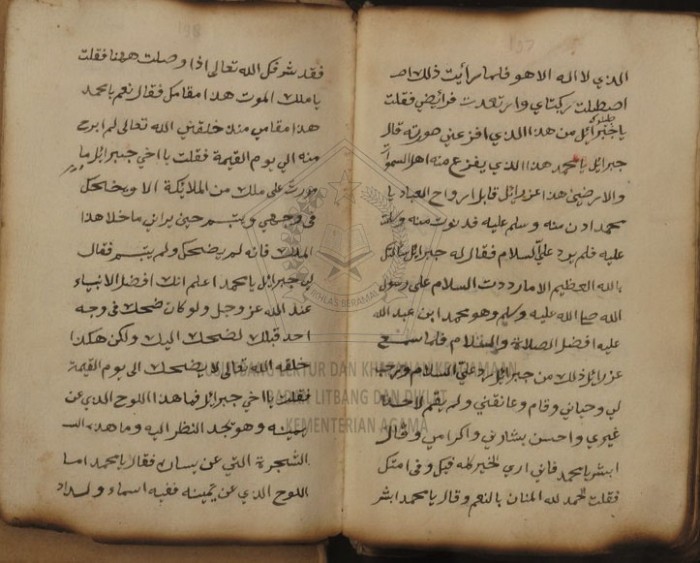 الذي لا اله الا هو فلما رأيت ذلك اصـ
اصطلت ركبتاي وارتعدت فرائضي فقلت
يا جبرائيل من هذا الذي افزعني صورته قال
جبرايل يا محمد هذا الذي يفزع منه اهل السموات
والارضين هذا عزرايل قابل ارواح العباد يا
محمد ادن منه وسلم عليه فدنوت منه وسلمت
عليه فلم يرد علي السلام فقال له جبرايل سألتك
بالله العظيم الا ما رددت السلام على رسول
الله صلى الله عليه وسلم وهو محمد ابن عبد الله
عليه افضل الصلاة والسلام فلما سمع
عزرايل ذلك من جبرايل رد علي السلام ورحب
بي وحياني وقام وعانقني ولم يقم لاحد
غيري واحسن بشارتي واكرامي وقال
ابشر يا محمد فاني ارى الخير كله فيك وفي امتك
فقلت الحمد لله المنان بالنعم وقال يا محمد ابشر
فقد شرفك الله تعالى اذا وصلت ههنا فقلت
يا ملك الموت هذا مقامك فقال نعم يا محمد
هذا مقامي منذ خلقني الله تعالى لم ابرح
منه الي يوم القيمة فقلت يا اخي جبرايل ما
مررت على ملك من الملايكة الا ويضحك
في وجهي ويتبسم حين يراني ما خلا هذا
الملك فانه لم يضحك ولم يتبسم فقال
لي جبرايل يا محمد اعلم انك افضل الانبياء
عند الله عز وجل ولو كان ضحك في وجه
احد قبلك لضحك اليك ولكن هكذا
خلقه الله تعالى لا يضحك الى يوم القيمة
فقلت يا اخي جبرايل فما هذا اللوح الذي عن
يمينه وهو يجد النظر اليه وما هذه
الشجرة التي عن يساره فقال يا محمد اما
اللوح الذي عن يمينه ففيه اسماء اولاد
PUSLITBANG LEKTUR DAN KHAZANAH KEAGAMAAN
BADAN LITBANG DAN DIKLAT
KEMENTERIAN AGAMA
IKHLAS BERAMAL